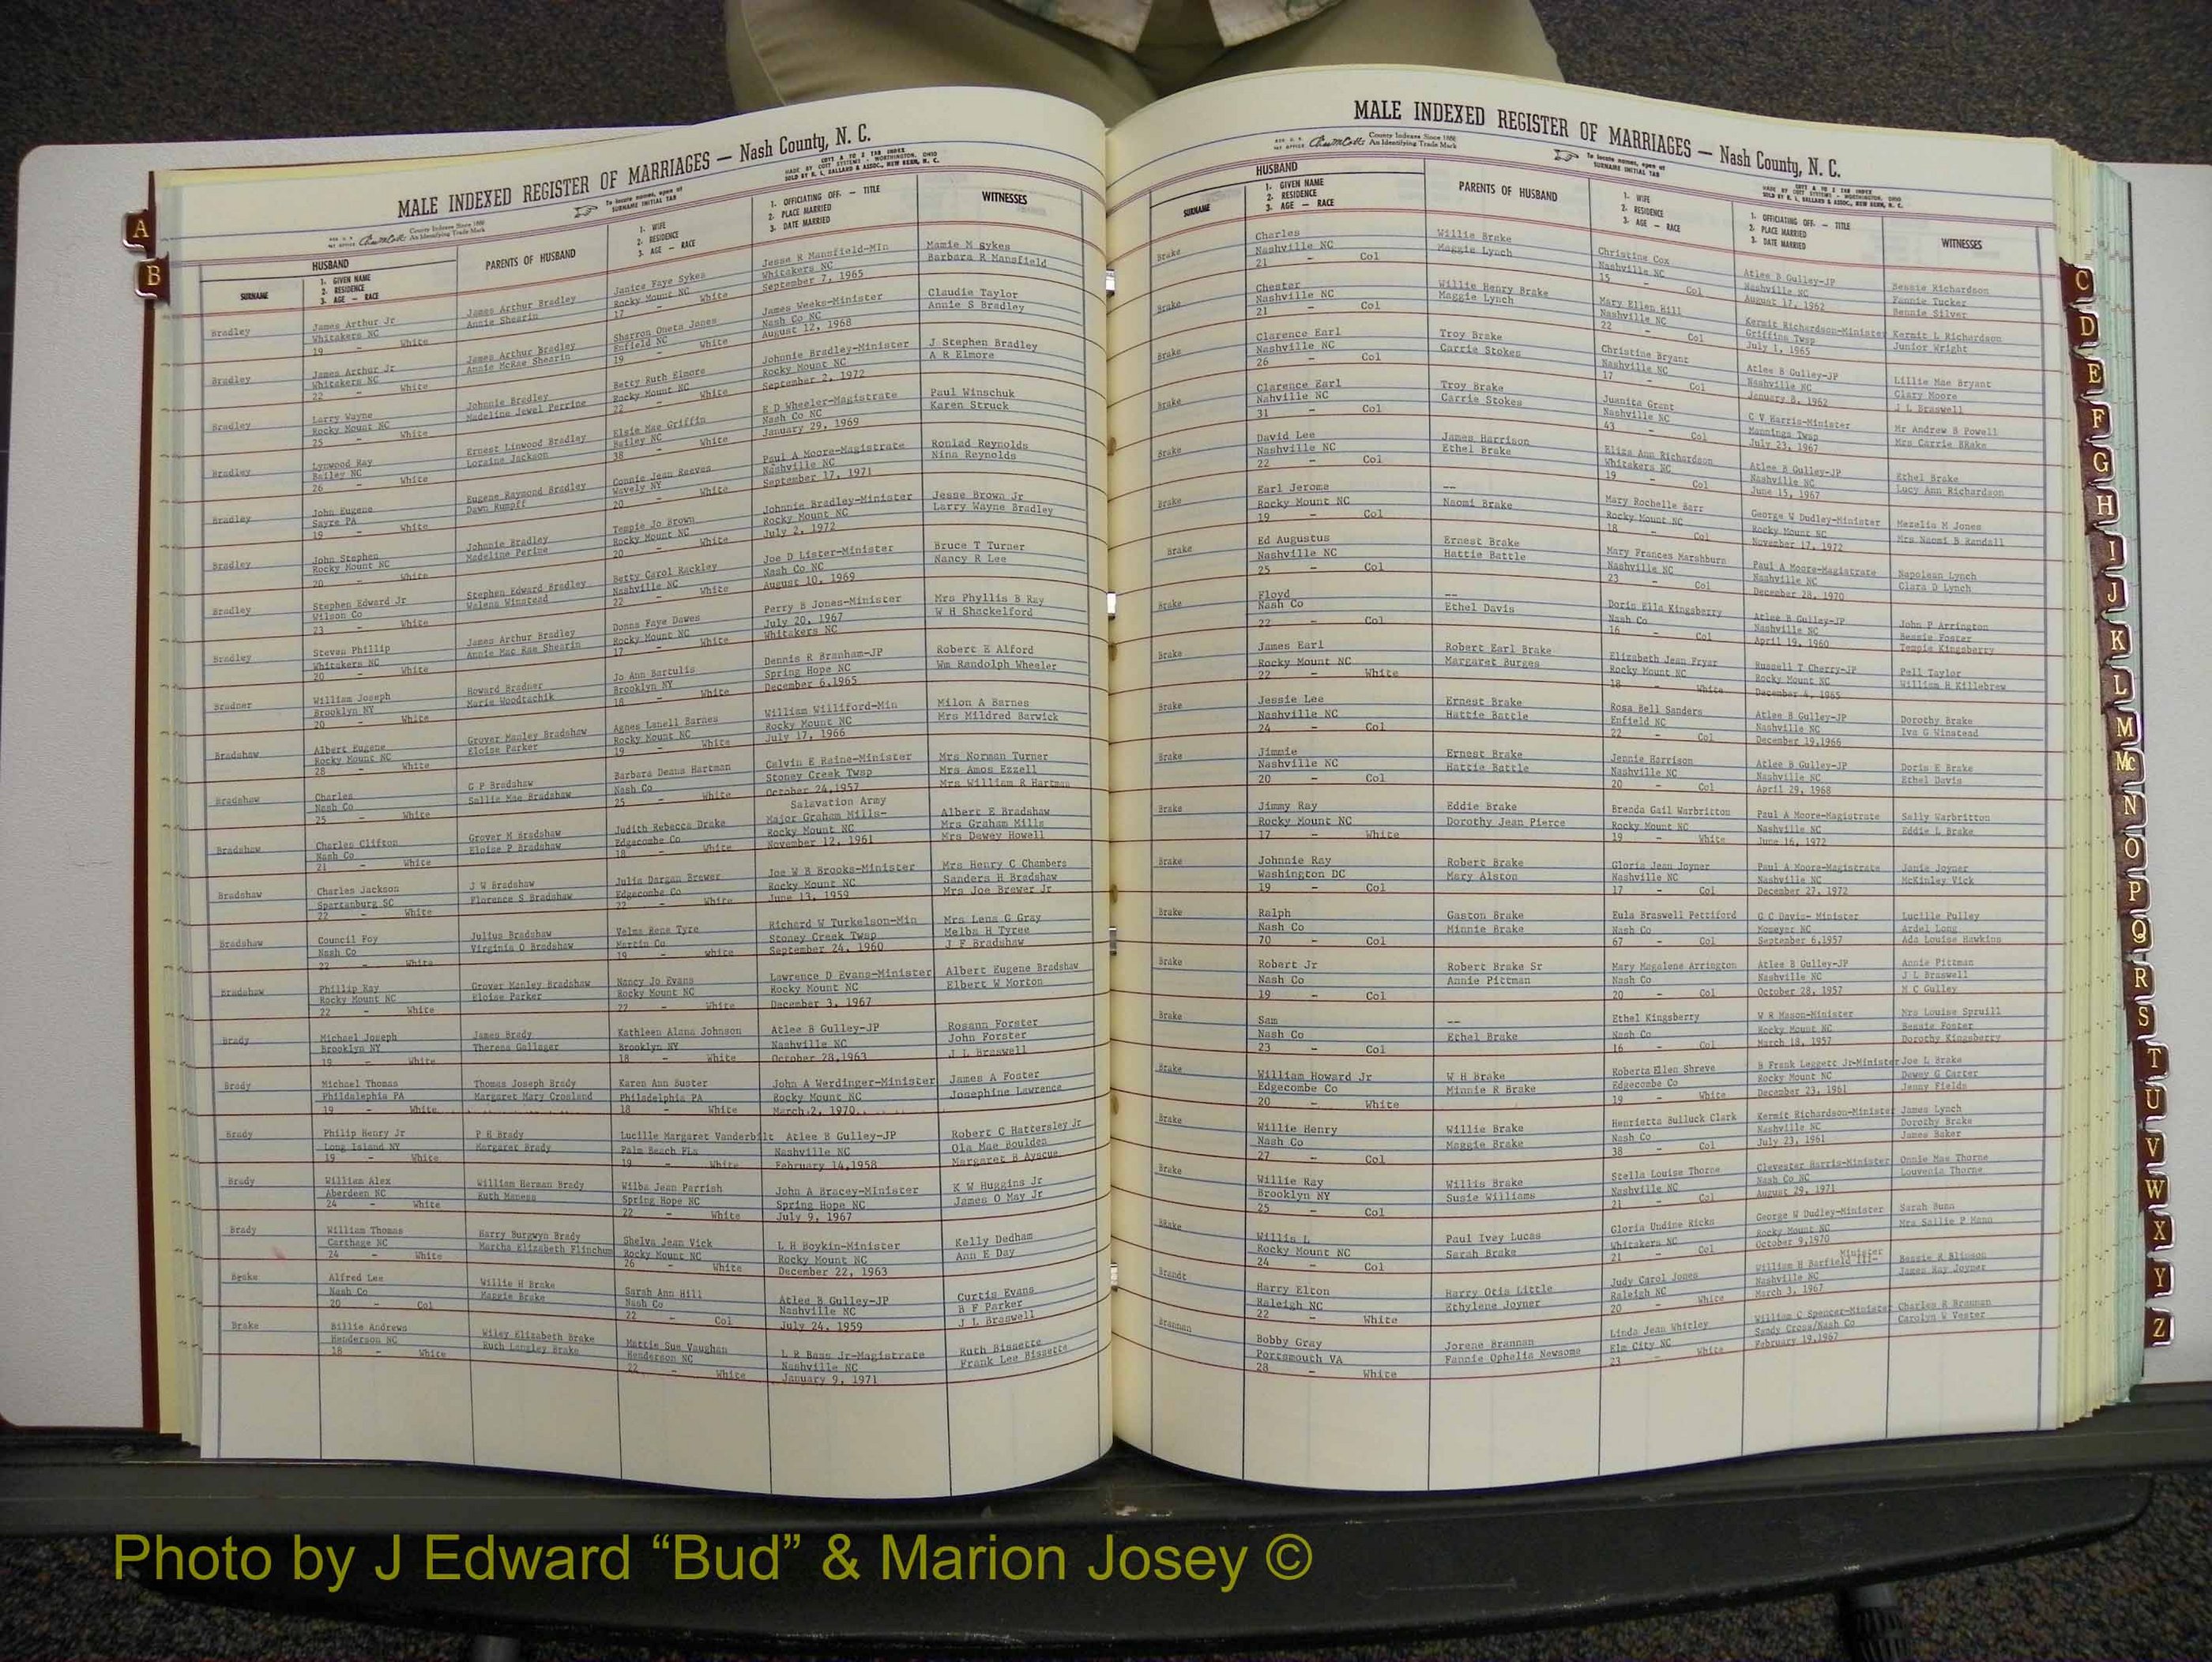 MALE INDEXED REGISTER OF MARRIAGES — Nash County, N. C.
County Indexes Since 1888
An Identifying Trade Mark
To locate names, open at
SURNAME INITIAL TAB
MADE BY COTT SYSTEMS - WORTHINGTON, OHIO
SOLD BY R. L. BALLARD & ASSOC., NEW BERN, N. C.
HUSBAND
SURNAME
1. GIVEN NAME
2. RESIDENCE
3. AGE — RACE
PARENTS OF HUSBAND
1. WIFE
2. RESIDENCE
3. AGE — RACE
1. OFFICIATING OFF. — TITLE
2. PLACE MARRIED
3. DATE MARRIED
WITNESSES
Bradley James Arthur Jr James Arthur Bradley Janice Faye Sykes Jesse R Mansfield-MIn Mamie M Sykes
Whitakers NC Annie Shearin Rocky Mount NC Whitakers NC Barbara R Mansfield
19 - White 17 - White September 7, 1965
Bradley James Arthur Jr James Arthur Bradley Sharron Oneta Jones James Weeks-Minister Claudie Taylor
Whitakers NC Annie McRae Shearin Enfield NC Nash Co NC Annie S Bradley
22 - White 19 - White August 12, 1968
Bradley Larry Wayne Johnnie Bradley Betty Ruth Elmore Johnnie Bradley-Minister J Stephen Bradley
Rocky Mount NC Madeline Jewel Perrine Rocky Mount NC Rocky Mount NC A R Elmore
25 - White 22 - White September 2, 1972
Bradley Lynwood Ray Ernest Linwood Bradley Elsie Mae Griffin E D Wheeler-Magistrate Paul Winschuk
Bailey NC Loraine Jackson Bailey NC Nash Co NC Karen Struck
26 - White 38 - White January 29, 1969
Bradley John Eugene Eugene Raymond Bradley Connie Jean Reeves Paul A Moore-Magistrate Ronlad Reynolds
Sayre PA Dawn Rumpff Wavely NY Nashville NC Nina Reynolds
19 - White 20 - White September 17, 1971
Bradley John Stephen Johnnie Bradley Tempie Jo Brown Johnnie Bradley-Minister Jesse Brown Jr
Rocky Mount NC Madeline Perine Rocky Mount NC Rocky Mount NC Larry Wayne Bradley
20 - White 20 - White July 2, 1972
Bradley Stephen Edward Jr Stephen Edward Bradley Betty Carol Rackley Joe D Lister-Minister Bruce T Turner
Wilson Co Walena Winstead Nashville NC Nash Co NC Nancy R Lee
23 - White 22 - White August 10, 1969
Bradley Steven Phillip James Arthur Bradley Donna Faye Dawes Perry B Jones-Minister Mrs Phyllis B Ray
Whitakers NC Annie Mac Rae Shearin Rocky Mount NC July 20, 1967 W H Shackelford
20 - White 17 - White Whitakers NC
Bradner William Joseph Howard Bradner Jo Ann Bartulis Dennis R Branham-JP Robert E Alford
Brooklyn NY Marie Woodtschik Brooklyn NY Spring Hope NC Wm Randolph Wheeler
20 - White 18 - White December 6,1965
Bradshaw Albert Eugene Grover Manley Bradshaw Agnes Lanell Barnes William Williford-Min Milon A Barnes
Rocky Mount NC Eloise Parker Rocky Mount NC Rocky Mount NC Mrs Mildred Barwick
28 - White 19 - White July 17, 1966
Bradshaw Charles G P Bradshaw Barbara Deans Hartman Calvin E Raine-Minister Mrs Norman Turner
Nash Co Sallie Mae Bradshaw Nash Co Stoney Creek Twsp Mrs Amos Ezzell
25 - White 25 - White October 24,1957 Mrs William R Hartman
Salavation Army
Bradshaw Charles Clifton Grover M Bradshaw Judith Rebecca Drake Major Graham Mills- Albert E Bradshaw
Nash Co Eloise P Bradshaw Edgecombe Co Rocky Mount NC Mrs Graham Mills
21 - White 18 - White November 12, 1961 Mrs Dewey Howell
Bradshaw Charles Jackson J W Bradshaw Julia Dargan Brewer Joe W B Brooks-Minister Mrs Henry C Chambers
Spartanburg SC Florence S Bradshaw Edgecombe Co Rocky Mount NC Sanders H Bradshaw
22 - White 22 - White June 13, 1959 Mrs Joe Brewer Jr
Bradshaw Council Foy Julius Bradshaw Velma Rene Tyre Richard W Turkelson-Min Mrs Lena G Gray
Nash Co Virginia O Bradshaw Martin Co Stoney Creek Twsp Melba H Tyree
22 - White 19 - white September 24, 1960 J F Bradshaw
Bradshaw Phillip Ray Grover Manley Bradshaw Nancy Jo Evans Lawrence D Evans-Minister Albert Eugene Bradshaw
Rocky Mount NC Eloise Parker Rocky Mount NC Rocky Mount NC Elbert W Morton
22 - White 22 - White December 3, 1967
Brady Michael Joseph James Brady Kathleen Alana Johnson Atlee B Gulley-JP Rosann Forster
Brooklyn NY Theresa Gallager Brooklyn NY Nashville NC John Forster
19 - White 18 - White October 28,1963 J L Braswell
Brady Michael Thomas Thomas Joseph Brady Karen Ann Suster John A Werdinger-Minister James A Foster
Phildalephia PA Margaret Mary Crosland Philadelphia PA Rocky Mount NC Josephine Lawrence
19 - White 18 - White March 2, 1970
Brady Philip Henry Jr P H Brady Lucille Margaret Vanderbilt Atlee B Gulley-JP Robert C Hattersley Jr
Long Island NY Margaret Brady Palm Beach FLa Nashville NC Ola Mae Boulden
19 - White 19 - White February 14,1958 Margaret B Ayscue
Brady William Alex William Herman Brady Wilba Jean Parrish John A Bracey-MInister K W Huggins Jr
Aberdeen NC Ruth Maness Spring Hope NC Spring Hope NC James O May Jr
24 - White 22 - White July 9, 1967
Brady William Thomas Harry Burgwyn Brady Shelva Jean Vick L H Boykin-Minister Kelly Dedham
Carthage NC Martha Elizabeth Flinchum Rocky Mount NC Rocky Mount NC Ann E Day
24 - White 26 - White December 22, 1963
Brake Alfred Lee Willie H Brake Sarah Ann Hill Atlee B Gulley-JP Curtis Evans
Nash Co Maggie Brake Nash Co Nashville NC B F Parker
20 - Col 22 - Col July 24, 1959 J L Braswell
Brake Billie Andrews Wiley Elizabeth Brake Mattie Sue Vaughan L R Bass Jr-Magistrate Ruth Bissette
Henderson NC Ruth Langley Brake Henderson NC Nashville NC Frank Lee Bissette
18 - White 22 - White January 9, 1971
MALE INDEXED REGISTER OF MARRIAGES — Nash County, N. C.
County Indexes Since 1888
An Identifying Trade Mark
To locate names, open at
SURNAME INITIAL TAB
MADE BY COTT SYSTEMS - WORTHINGTON, OHIO
SOLD BY R. L. BALLARD & ASSOC., NEW BERN, N. C.
HUSBAND
SURNAME
1. GIVEN NAME
2. RESIDENCE
3. AGE — RACE
PARENTS OF HUSBAND
1. WIFE
2. RESIDENCE
3. AGE — RACE
1. OFFICIATING OFF. — TITLE
2. PLACE MARRIED
3. DATE MARRIED
WITNESSES
Brake Charles Willie Brake Christine Cox Atlee B Gulley-JP Bessie Richardson
Nashville NC Maggie Lynch Nashville NC Nashville NC Fannie Tucker
21 - Col 15 - Col August 17, 1962 Bennie Silver
Brake Chester Willie Henry Brake Mary Ellen Hill Kermit Richardson-Minister Kermit L Richardson
Nashville NC Maggie Lynch Nashville NC Griffins Twsp Junior Wright
21 - Col 22 - Col July 1, 1965
Brake Clarence Earl Troy Brake Christine Bryant Atlee B Gulley-JP Lillie Mae Bryant
Nashville NC Carrie Stokes Nashville NC Nashville NC Clary Moore
26 - Col 17 - Col January 8, 1962 J L Braswell
Brake Clarence Earl Troy Brake Juanita Grant C V Harris-Minister Mr Andrew B Powell
Nahville NC Carrie Stokes Nashville NC Mannings Twsp Mrs Carrie BRake
31 - Col 43 - Col July 23, 1967
Brake David Lee James Harrison Eliza Ann Richardson Atlee B Gulley-JP Ethel Brake
Nashville NC Ethel Brake Whitakers NC Nashville NC Lucy Ann Richardson
22 - Col 19 - Col June 15, 1967
Brake Earl Jerome -- Mary Rochelle Barr George W Dudley-Minister Mezelia M Jones
Rocky Mount NC Naomi Brake Rocky Mount NC Rocky Mount NC Mrs Naomi B Randall
19 - Col 18 - Col November 17, 1972
Brake Ed Augustus Ernest Brake Mary Frances Marshburn Paul A Moore-Magistrate Napolean Lynch
Nashville NC Hattie Battle Nashville NC Nashville NC Clara D Lynch
25 - Col 23 - Col December 28, 1970
Brake Floyd -- Doris Ella Kingsberry Atlee B Gulley-JP John P Arrington
Nash Co Ethel Davis Nash Co Nashville NC Bessie Foster
22 - Col 16 - Col April 19, 1960 Tempie Kingsberry
Brake James Earl Robert Earl Brake Elizabeth Jean Fryar Russell T Cherry-JP Pell Taylor
Rocky Mount NC Margaret Burges Rocky Mount NC Rocky Mount NC William H Killebrew
22 - White 18 - White December 4, 1965
Brake Jessie Lee Ernest Brake Rosa Bell Sanders Atlee B Gulley-JP Dorothy Brake
Nashville NC Hattie Battle Enfield NC Nashville NC Iva G Winstead
24 - Col 22 - Col December 19,1966
Brake Jimmie Ernest Brake Jennie Harrison Atlee B Gulley-JP Doris E Brake
Nashville NC Hattie Battle Nashville NC Nashville NC Ethel Davis
20 - Col 20 - Col April 29, 1968
Brake Jimmy Ray Eddie Brake Brenda Gail Warbritton Paul A Moore-Magistrate Sally Warbritton
Rocky Mount NC Dorothy Jean Pierce Rocky Mount NC Nashville NC Eddie L Brake
17 - White 19 - White June 16, 1972
Brake Johnnie Ray Robert Brake Gloria Jean Joyner Paul A Moore-Magistrate Janie Joyner
Washington DC Mary Alston Nashville NC Nashville NC McKinley Vick
19 - Col 17 - Col December 27, 1972
Brake Ralph Gaston Brake Eula Braswell Pettiford G C Davis- Minister Lucille Pulley
Nash Co Minnie Brake Nash Co Momeyer NC Ardel Long
70 - Col 67 - Col September 6,1957 Ada Louise Hawkins
Brake Robert Jr Robert Brake Sr Mary Magalene Arrington Atlee B Gulley-JP Annie Pittman
Nash Co Annie Pittman Nash Co Nashville NC J L Braswell
19 - Col 20 - Col October 28, 1957 M C Gulley
Brake Sam -- Ethel Kingsberry W R Mason-Minister Mrs Louise Spruill
Nash Co Ethel Brake Nash Co Rocky Mount NC Bessie Foster
23 - Col 16 - Col March 18, 1957 Dorothy Kingsberry
Brake William Howard Jr W H Brake Roberta Ellen Shreve B Frank Leggett Jr-Minister Joe L Brake
Edgecombe Co Minnie R Brake Edgecombe Co Rocky Mount NC Dewey G Carter
20 - White 19 - White December 23, 1961 Jenny Fields
Brake Willie Henry Willie Brake Henrietta Bulluck Clark Kermit Richardson-Minister James Lynch
Nash Co Maggie Brake Nash Co Nashville NC Dorothy Brake
27 - Col 38 - Col July 23, 1961 James Baker
Brake Willie Ray Willis Brake Stella Louise Thorne Clevester Harris-Minister Onnie Mae Thorne
Brooklyn NY Susie Williams Nashville NC Nash Co NC Louvenia Thorne
25 - Col 21 - Col August 29, 1971
BRake Willis L Paul Ivey Lucas Gloria Undine Ricks George W Dudley-Minister Sarah Bunn
Rocky Mount NC Sarah Brake Whitakers NC Rocky Mount NC Mrs Sallie P Mann
24 - Col 21 - Col October 9,1970
Minister
Brandt Harry Elton Harry Otis Little Judy Carol Jones William H Barfield III- Bessie R Blinson
Raleigh NC Ethylene Joyner Raleigh NC Nashville NC James Ray Joyner
22 - White 20 - White March 3, 1967
Brannan Bobby Gray Jorene Brannan Linda Jean Whitley William C Spencer-Minister Charles R Brannan
Portsmouth VA Fannie Ophelia Newsome Elm City NC Sandy Cross/Nash Co Carolyn W Vester
28 - White 23 - White February 19,1967
A
B
C
D
E
F
G
H
I
J
K
L
M
Mc
N
O
P
Q
R
S
T
U
V
W
X
Y
Z
Photo by J Edward “Bud” & Marion Josey ©